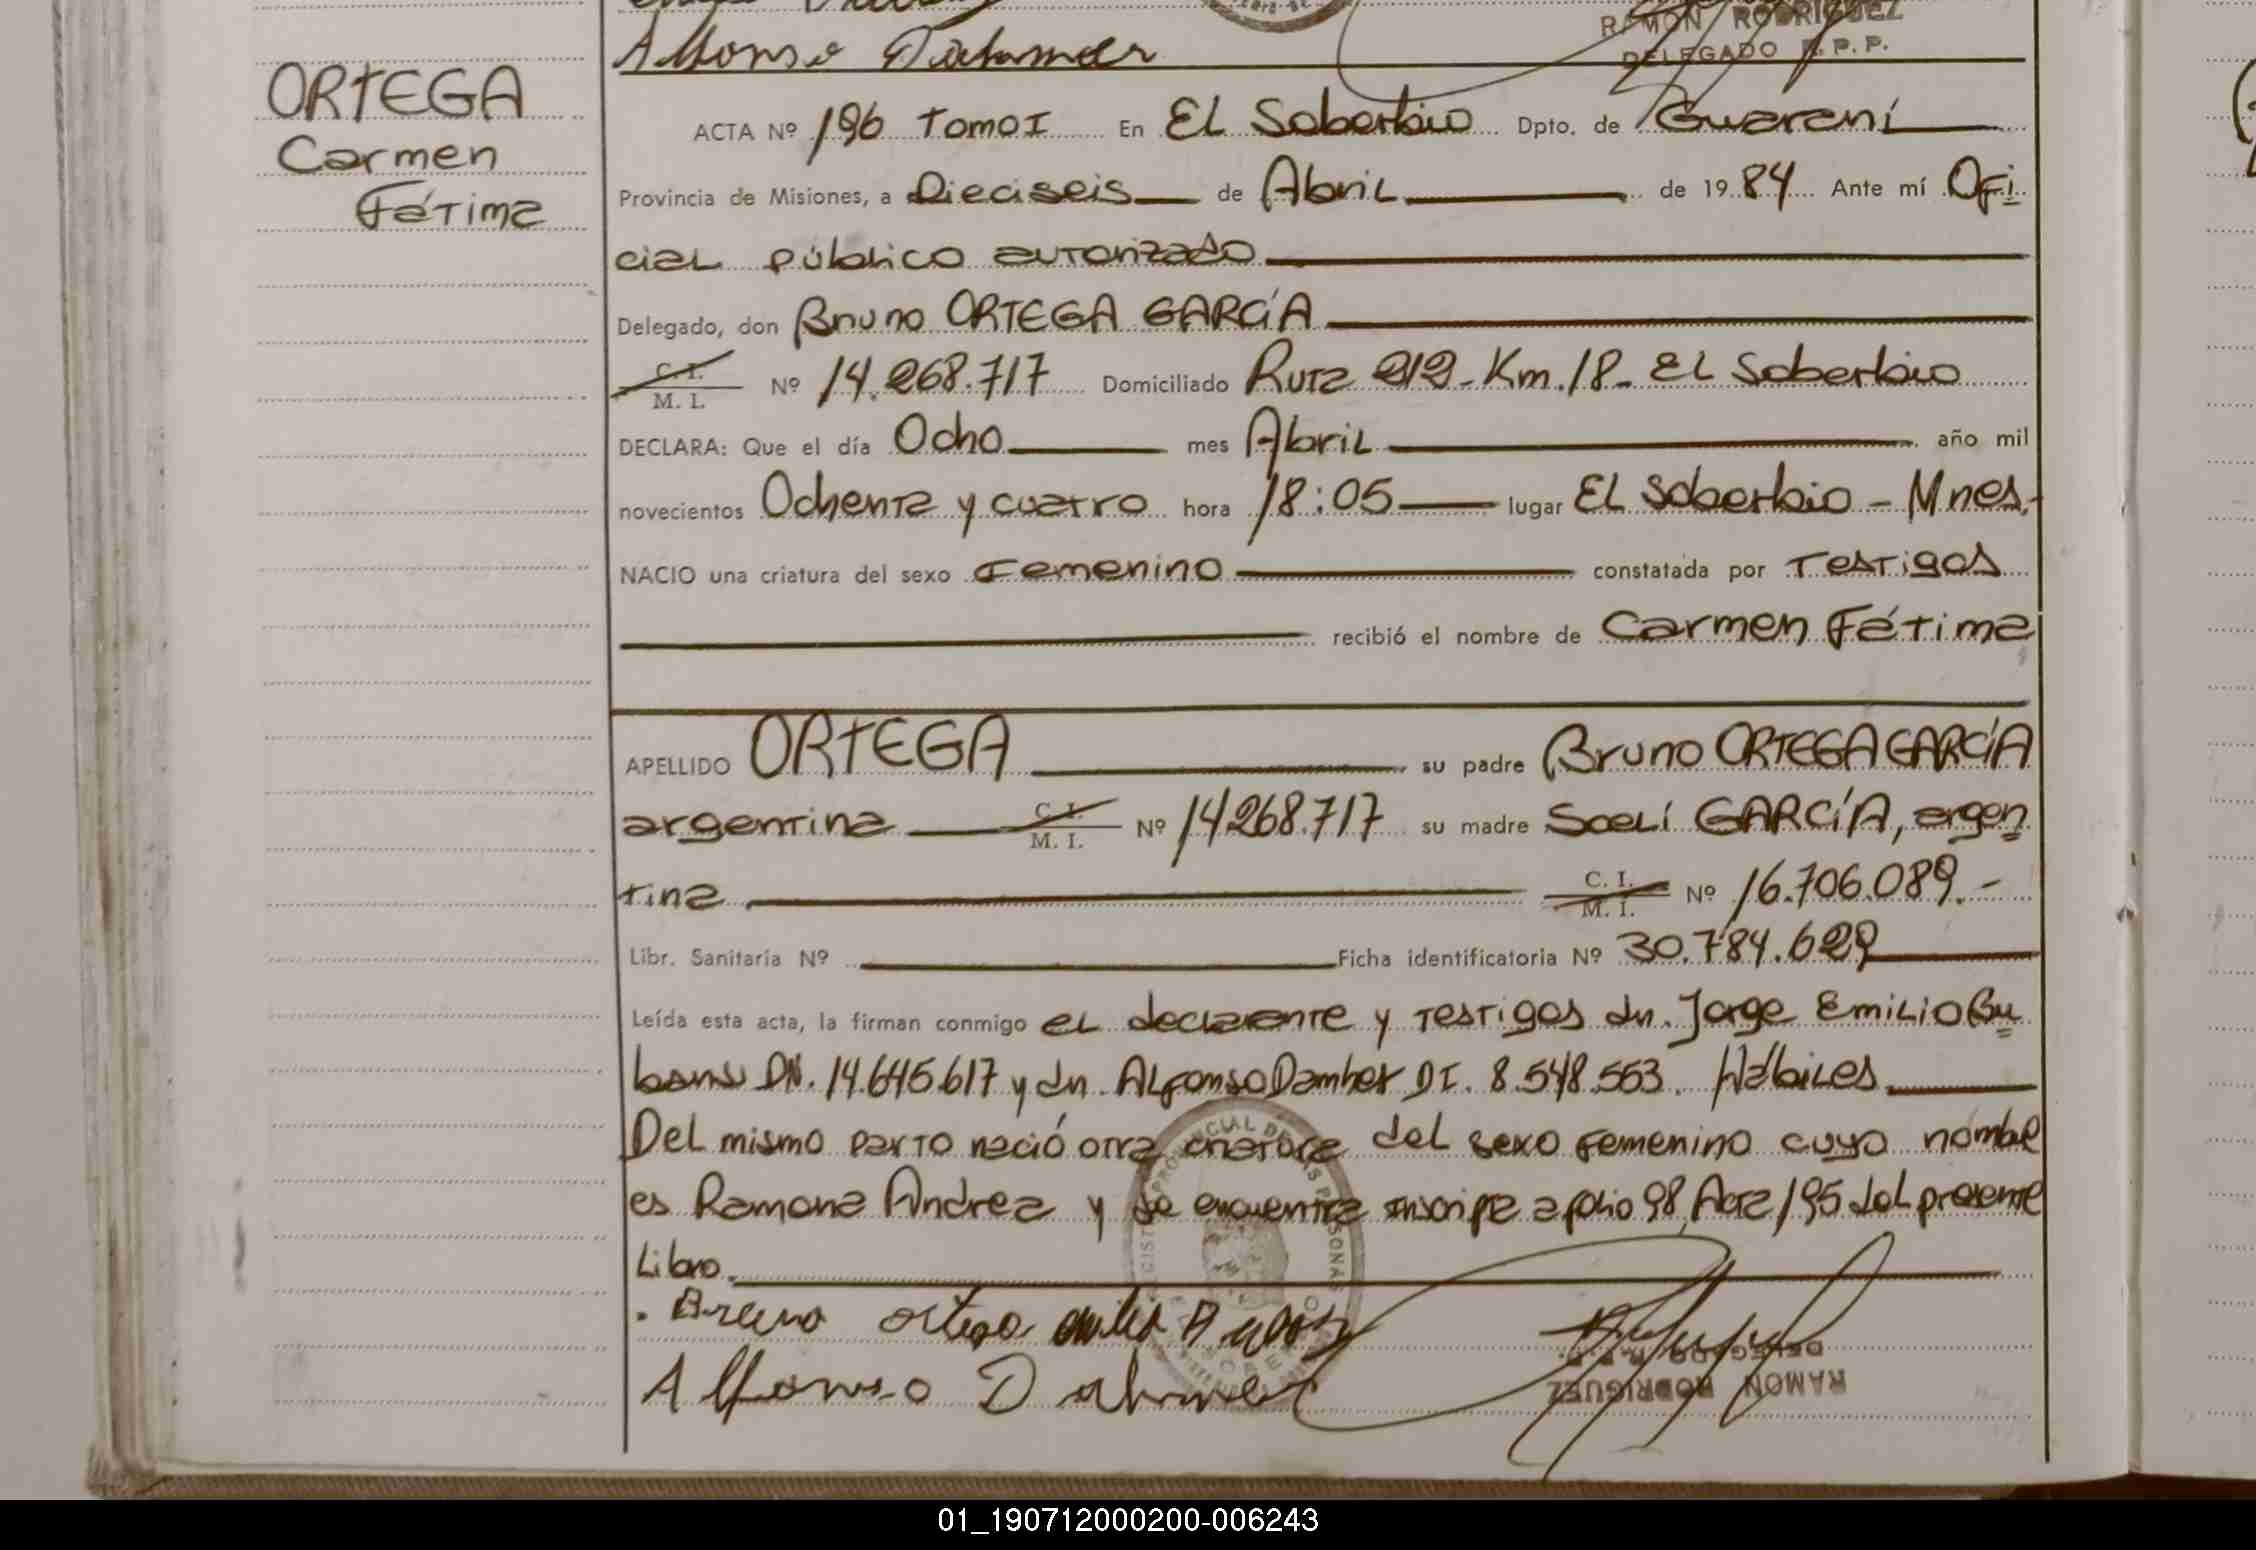 Alfonso
RAMON RODRIGUEZ
DELEGADO R. P. P.
ORTEGA
Carmen
Fátima
ACTA Nº 196 Tomo I En El Soberbio Dpto. de Guaraní
Provincia de Misiones, a Dieciseis de Abril de 1984 Ante mí Ofi
cial público autorizado
Delegado, don Bruno ORTEGA GARCÍA
C. I.
M. I. Nº 14.268.717 Domiciliado Ruta 212 - Km. 18 - El Soberbio
DECLARA: Que el día Ocho mes Abril año mil
novecientos Ochenta y cuatro hora 18:05 lugar El Soberbio - Mnes.-
NACIO una criatura del sexo Femenino constatada por Testigos
recibió el nombre de Carmen Fátima
APELLIDO ORTEGA su padre Bruno ORTEGA GARCÍA
argentina C. I. M. I. Nº 14268.717 su madre Soelí GARCÍA, argen
tina C. I. M. I. Nº 16.706.089.-
Libr. Sanitaria Nº Ficha identificatoria Nº 30.784.629
Leída esta acta, la firman conmigo el declarante y testigos dn. Jorge Emilio
14.645.617 y dn. Alfonso DI. 8.548.553. Hábiles
Del mismo parto nació otra criatura del sexo femenino cuyo nombre
es Ramona Andrea y se encuentra inscripta a folio 98, Acta 195 del presente
Libro.
Bruno Ortega
Alfonso
DELEGADO R. P. P.
RAMON RODRIGUEZ
01_190712000200-006243